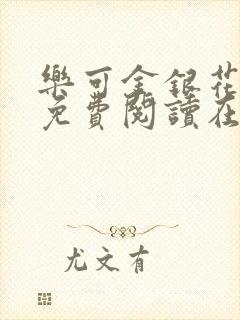 樂可金銀花
免費閱讀在
尤文有